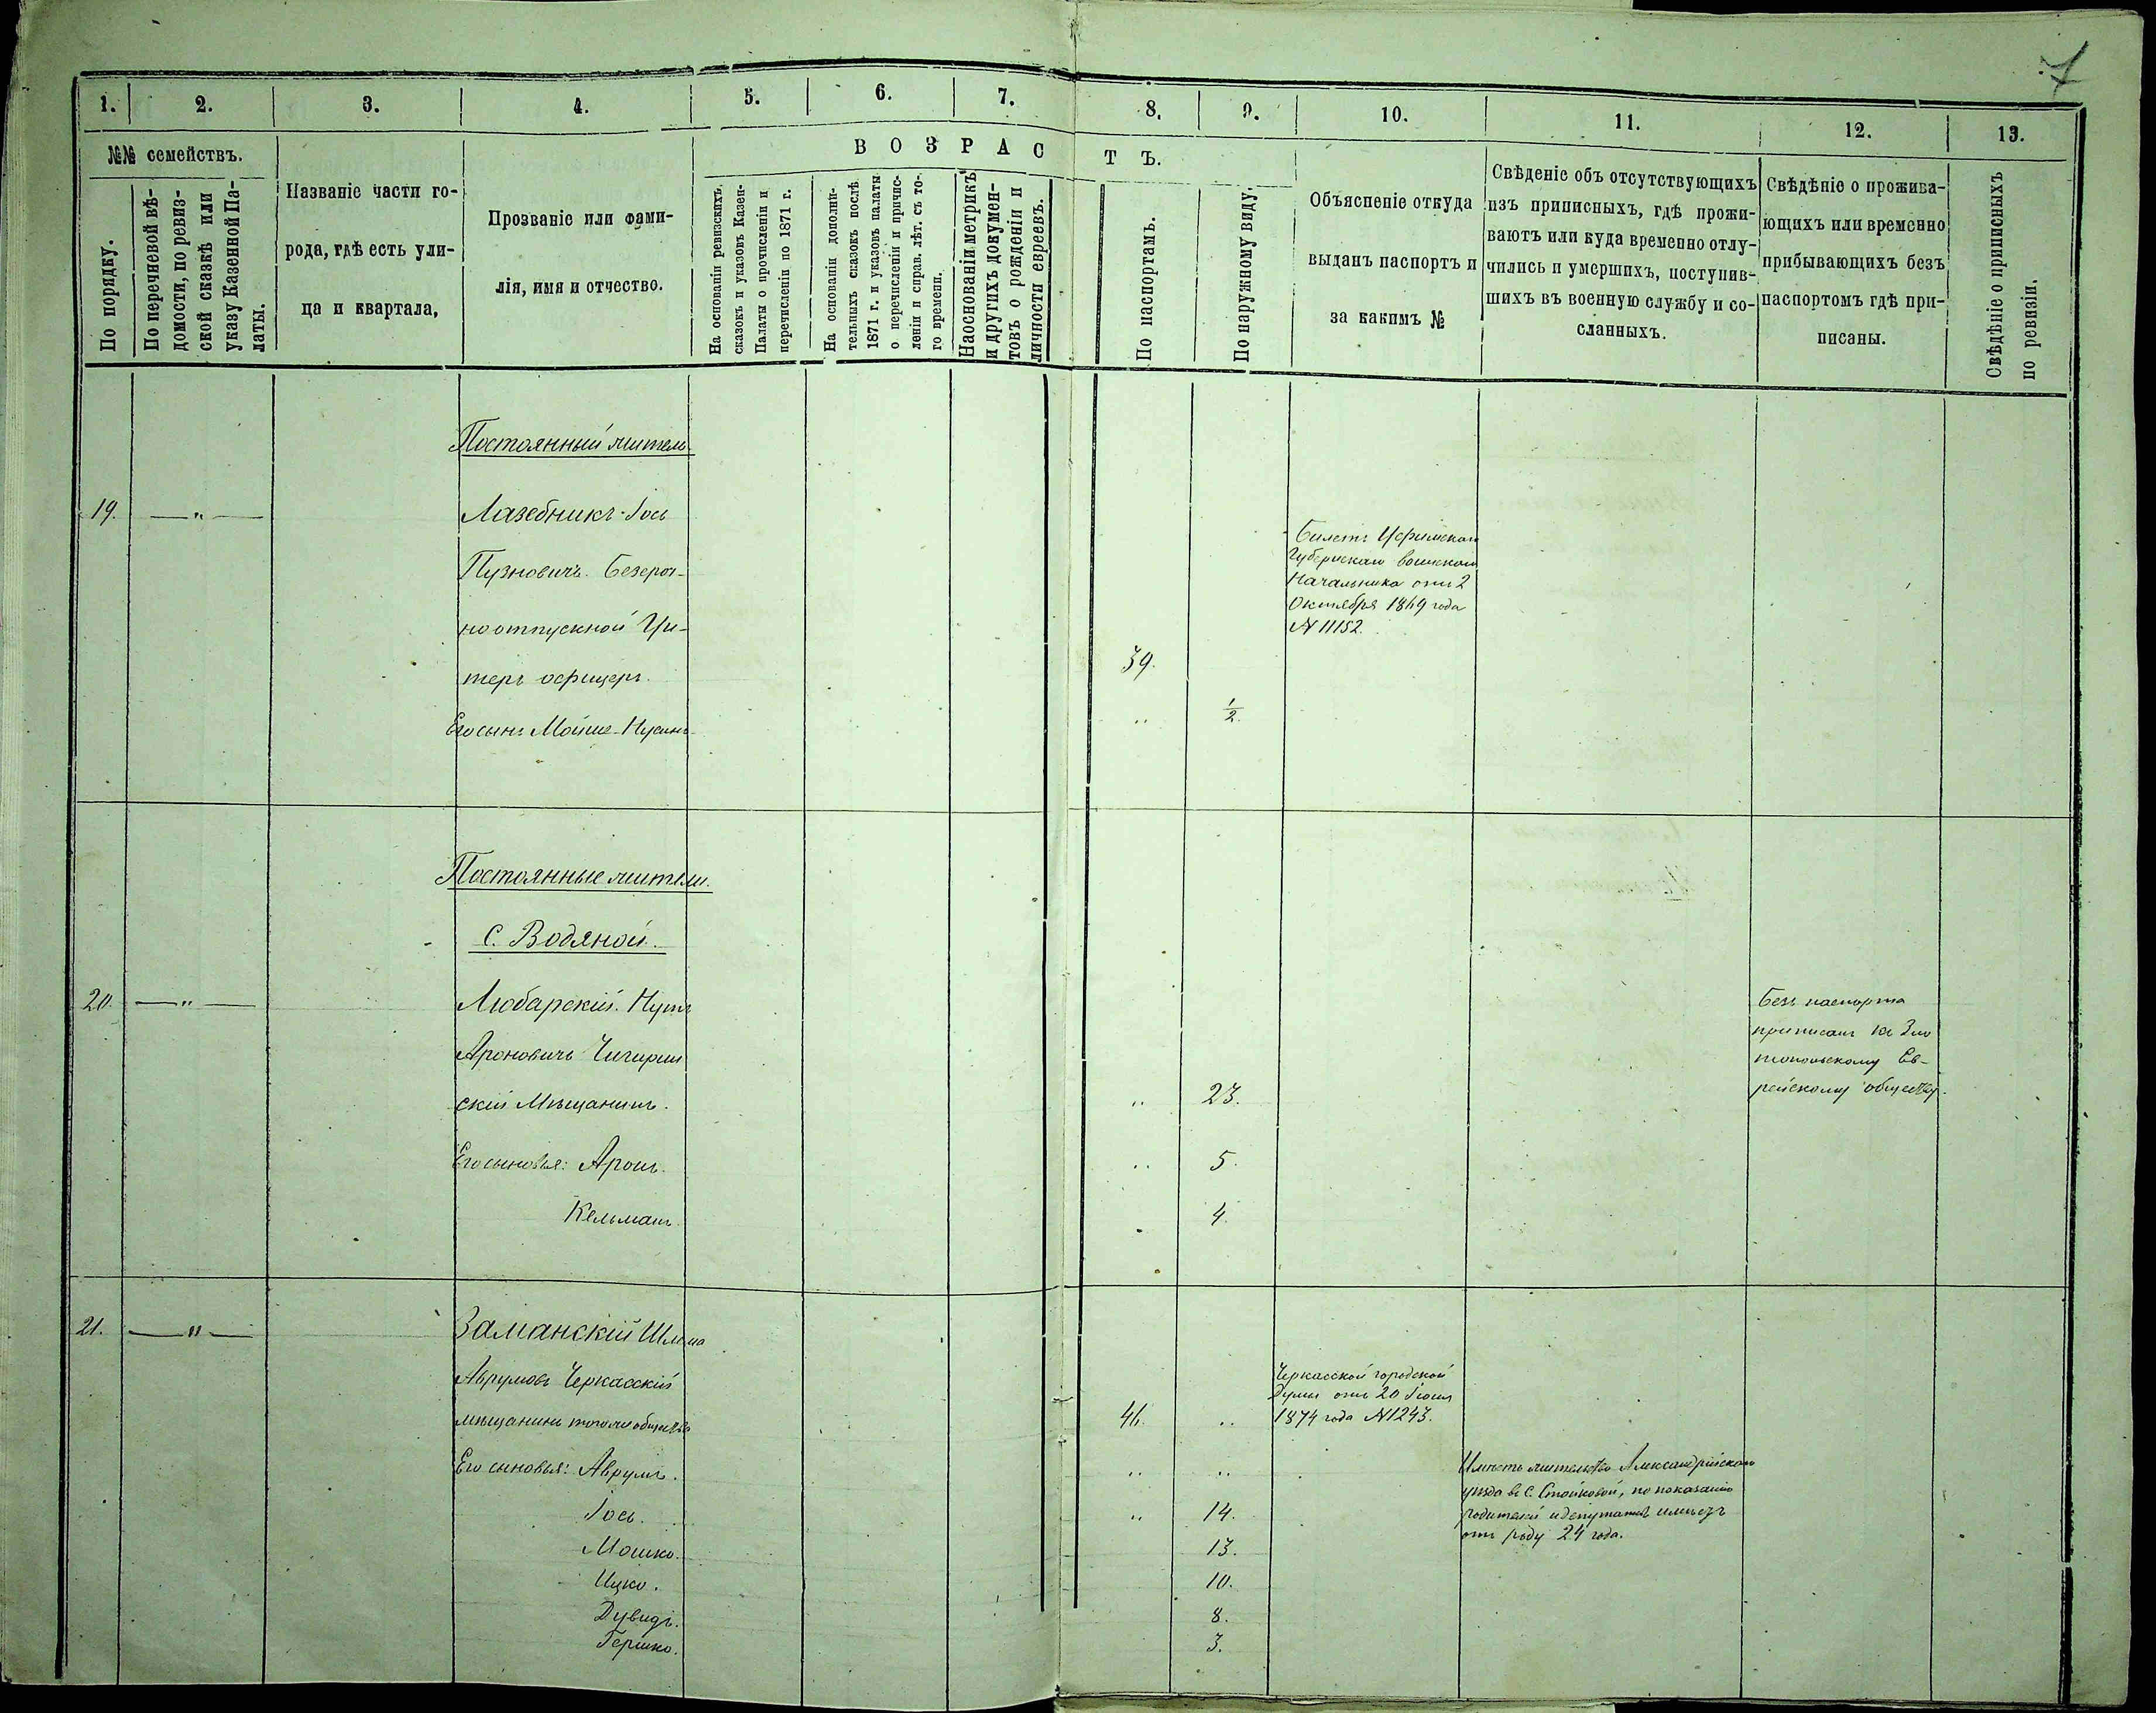 7
1. 2. 3. 4. 5. 6. 7. 8. 9. 10. 11. 12. 13.
№№ семействъ.
По порядку.
По перечневой вѣ-
домости, по ревиз-
ской сказкѣ или
указу Казенной Па-
латы.
Названіе части го-
рода, гдѣ есть ули-
ца и квартала,
Прозваніе или фами-
лія, имя и отчество.
ВОЗРАСТЪ.
На основаніи ревизскихъ
сказокъ и указовъ Казен-
Палаты о прочисленіи и
перечисленіи по 1871 г.
На основаніи дополни-
тельныхъ сказокъ послѣ
1871 г. и указовъ палаты
о перечисленіи и причис-
леніи и справ. лѣт. съ то-
го времени.
На основаніи метрикъ
и другихъ докумен-
товъ о рожденіи и
личности евреевъ.
По паспортамъ.
По наружному виду.
Объясненіе откуда
выданъ паспортъ и
за какимъ №
Свѣденіе объ отсутствующихъ
изъ приписныхъ, гдѣ прожи-
ваютъ или куда временно отлу-
чились и умершихъ, поступив-
шихъ въ военную службу и со-
сланныхъ.
Свѣдѣніе о прожива-
ющихъ или временно
прибывающихъ безъ
паспортомъ гдѣ при-
писаны.
Свѣдѣніе о приписныхъ
по ревизіи.
Постоянный житель
19. — " —
Лазебникъ Іось
Пузновичъ. Безсроч-
ноотпускной Ун-
теръ офицеръ. 39.
Его сынъ Мойше-Нусинъ " 1/2.
Билетъ
Губернскаго воинскаго
Начальника отъ 2
Октября 1869 года
№ 11152.
Постоянные жители
С. Водяной.
20. — " —
Любарскій. Нутъ
Ароновичъ Чигирин
скій Мѣщанинъ. " 23.
Его сыновья: Аронъ. " 5.
Кельманъ. " 4.
Безъ паспорта
приписанъ къ Зла
топольскому Ев-
рейскому обществу.
21. — " —
Заманскій Шлема
Аврумовъ Черкасскій
мѣщанинъ того же общества 46. "
Его сыновья: Аврумъ. " "
Іось. " 14.
Мошко. 13.
Ицко. 10.
Дувидъ. 8.
Гершко. 3.
Черкасской городской
Думы отъ 20 Іюня
1874 года №1243.
Имѣетъ жительство Александрійскаго
уѣзда въ С. Стойковой, по показанію
родителей и депутатовъ имѣетъ
отъ роду 24 года.